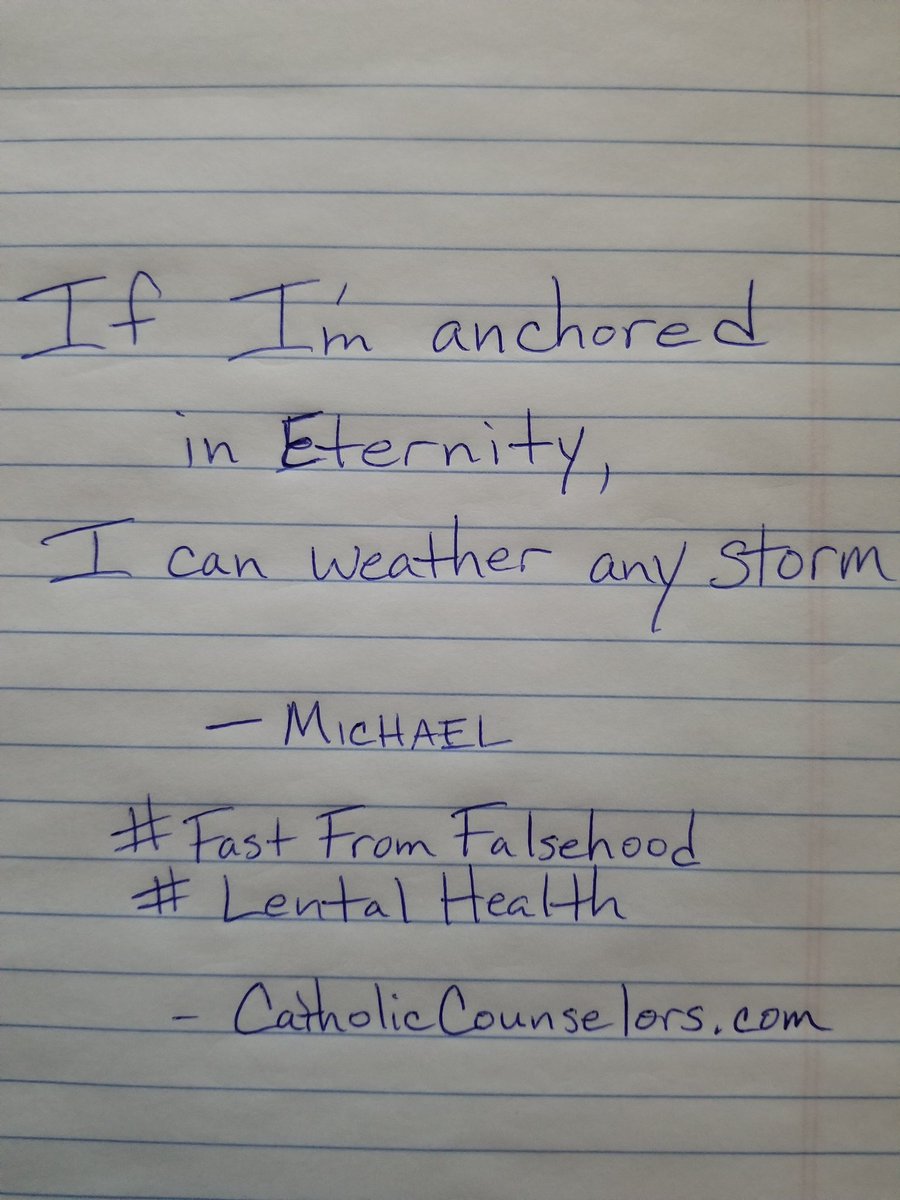 If I'm anchored
in Eternity,
I can weather any storm
— MICHAEL
# Fast From Falsehood
# Lental Health
- CatholicCounselors.com